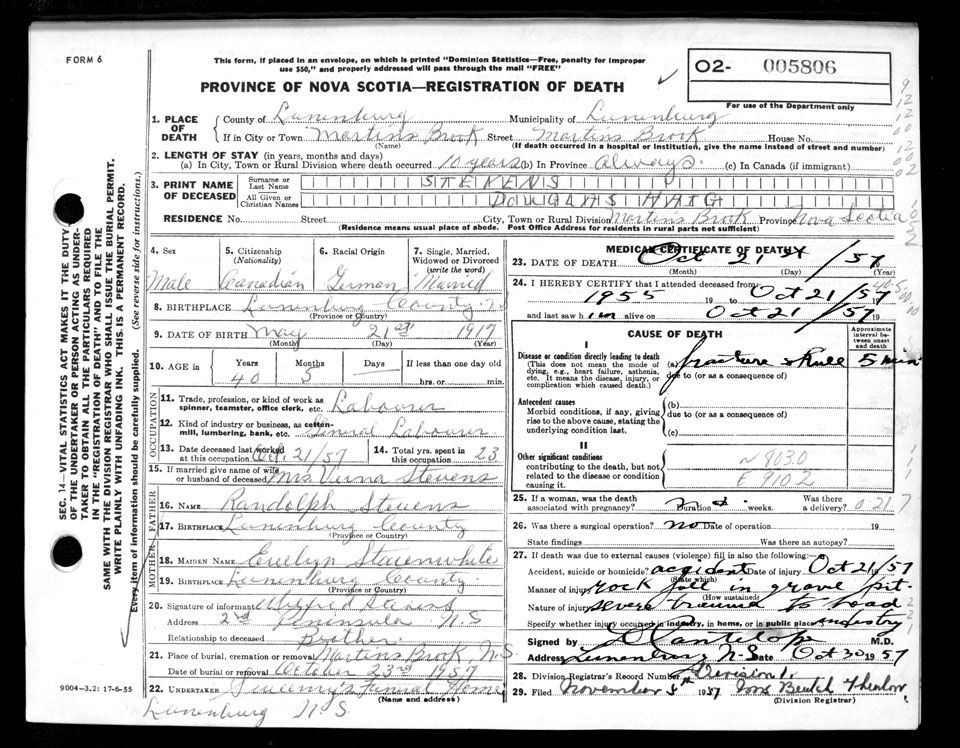 FORM 6
This form, if placed in an envelope, on which is printed "Dominion Statistics—Free, penalty for improper
use $50," and properly addressed will pass through the mail "FREE"
PROVINCE OF NOVA SCOTIA—REGISTRATION OF DEATH
02- 005806
For use of the Department only
1. PLACE OF DEATH
County of Lunenburg Municipality of Lunenburg
If in City or Town Martins Brook Street Martins Brook House No.
(Name) (If death occurred in a hospital or institution, give name instead of street and number)
2. LENGTH OF STAY (in years, months and days)
(a) In City, Town or Rural Division where death occurred 10 years (b) In Province always. (c) In Canada (if immigrant)
3. PRINT NAME OF DECEASED
Surname or Last Name STEVENS
All Given or Christian Names DOUGLAS HAIG
RESIDENCE No. Street City, Town or Rural Division Martin's Brook Province Nova Scotia
(Residence means usual place of abode. Post Office Address for residents in rural parts not sufficient)
SEC. 14—VITAL STATISTICS ACT MAKES IT THE DUTY
OF THE UNDERTAKER OR PERSON ACTING AS UNDER-
TAKER TO OBTAIN ALL THE PARTICULARS REQUIRED
IN THE "REGISTRATION OF DEATH" AND TO FILE THE
SAME WITH THE DIVISION REGISTRAR WHO SHALL ISSUE THE BURIAL PERMIT.
WRITE PLAINLY WITH UNFADING INK. THIS IS A PERMANENT RECORD.
Every item of information should be carefully supplied. (See reverse side for instructions.)
4. Sex 5. Citizenship (Nationality) 6. Racial Origin 7. Single, Married, Widowed or Divorced (write the word)
Male Canadian German Married
8. BIRTHPLACE Lunenburg County N.S.
(Province or County)
9. DATE OF BIRTH May 21st 1917
(Month) (Day) (Year)
10. AGE in Years Months Days If less than one day old
40 5 — hrs. or min.
OCCUPATION
11. Trade, profession, or kind of work as
spinner, teamster, office clerk, etc. Labourer
12. Kind of industry or business, as cotton-
mill, lumbering, bank, etc. General Labourer
13. Date deceased last worked
at this occupation Oct. 21/57
14. Total yrs. spent in
this occupation 23
15. If married give name of wife
or husband of deceased Mrs Verna Stevens
FATHER
16. NAME Randolph Stevens
17. BIRTHPLACE Lunenburg County
(Province or County)
MOTHER
18. MAIDEN NAME Evelyn Stevenwhite
19. BIRTHPLACE Lunenburg County.
(Province or Country)
20. Signature of informant Alfred Stevens
Address 2nd Peninsula N.S
Relationship to deceased Brother.
21. Place of burial, cremation or removal Martins Brook N.S.
Date of burial or removal October 23rd 1957
22. UNDERTAKER Funeral Home
(Name and address)
Lunenburg N.S
9004—3.2: 17-6-55
MEDICAL CERTIFICATE OF DEATH
23. DATE OF DEATH Oct 21 /57
(Month) (Day) (Year)
24. I HEREBY CERTIFY that I attended deceased from
1955 19 to Oct 21/57
and last saw him alive on Oct 21/57 19
CAUSE OF DEATH
Approximate interval between onset and death
I
Disease or condition directly leading to death
(This does not mean the mode of
dying, e.g., heart failure, asthenia,
etc. It means the disease, injury, or
complication which caused death.)
(a) fracture skull 5 min
due to (or as a consequence of)
Antecedent causes
Morbid conditions, if any, giving
rise to the above cause, stating the
underlying condition last.
(b)
due to (or as a consequence of)
(c)
II
Other significant conditions
contributing to the death, but not
related to the disease or condition
causing it.
N 803.0
E 910.2
25. If a woman, was the death
associated with pregnancy? No. Duration weeks. Was there a delivery?
26. Was there a surgical operation? no Date of operation 19
State findings Was there an autopsy?
27. If death was due to external causes (violence) fill in also the following:
Accident, suicide or homicide? accident Date of injury Oct 21/57
(State which)
Manner of injury rock fell in gravel pit
(How sustained)
Nature of injury severe trauma to head
Specify whether injury occurred in industry, in home, or in public place industry
Signed by D Cantelope M.D.
Address Lunenburg N.S. Date Oct 30 1957
28. Division Registrar's Record Number Division 1
29. Filed November 5th 1957
(Division Registrar)